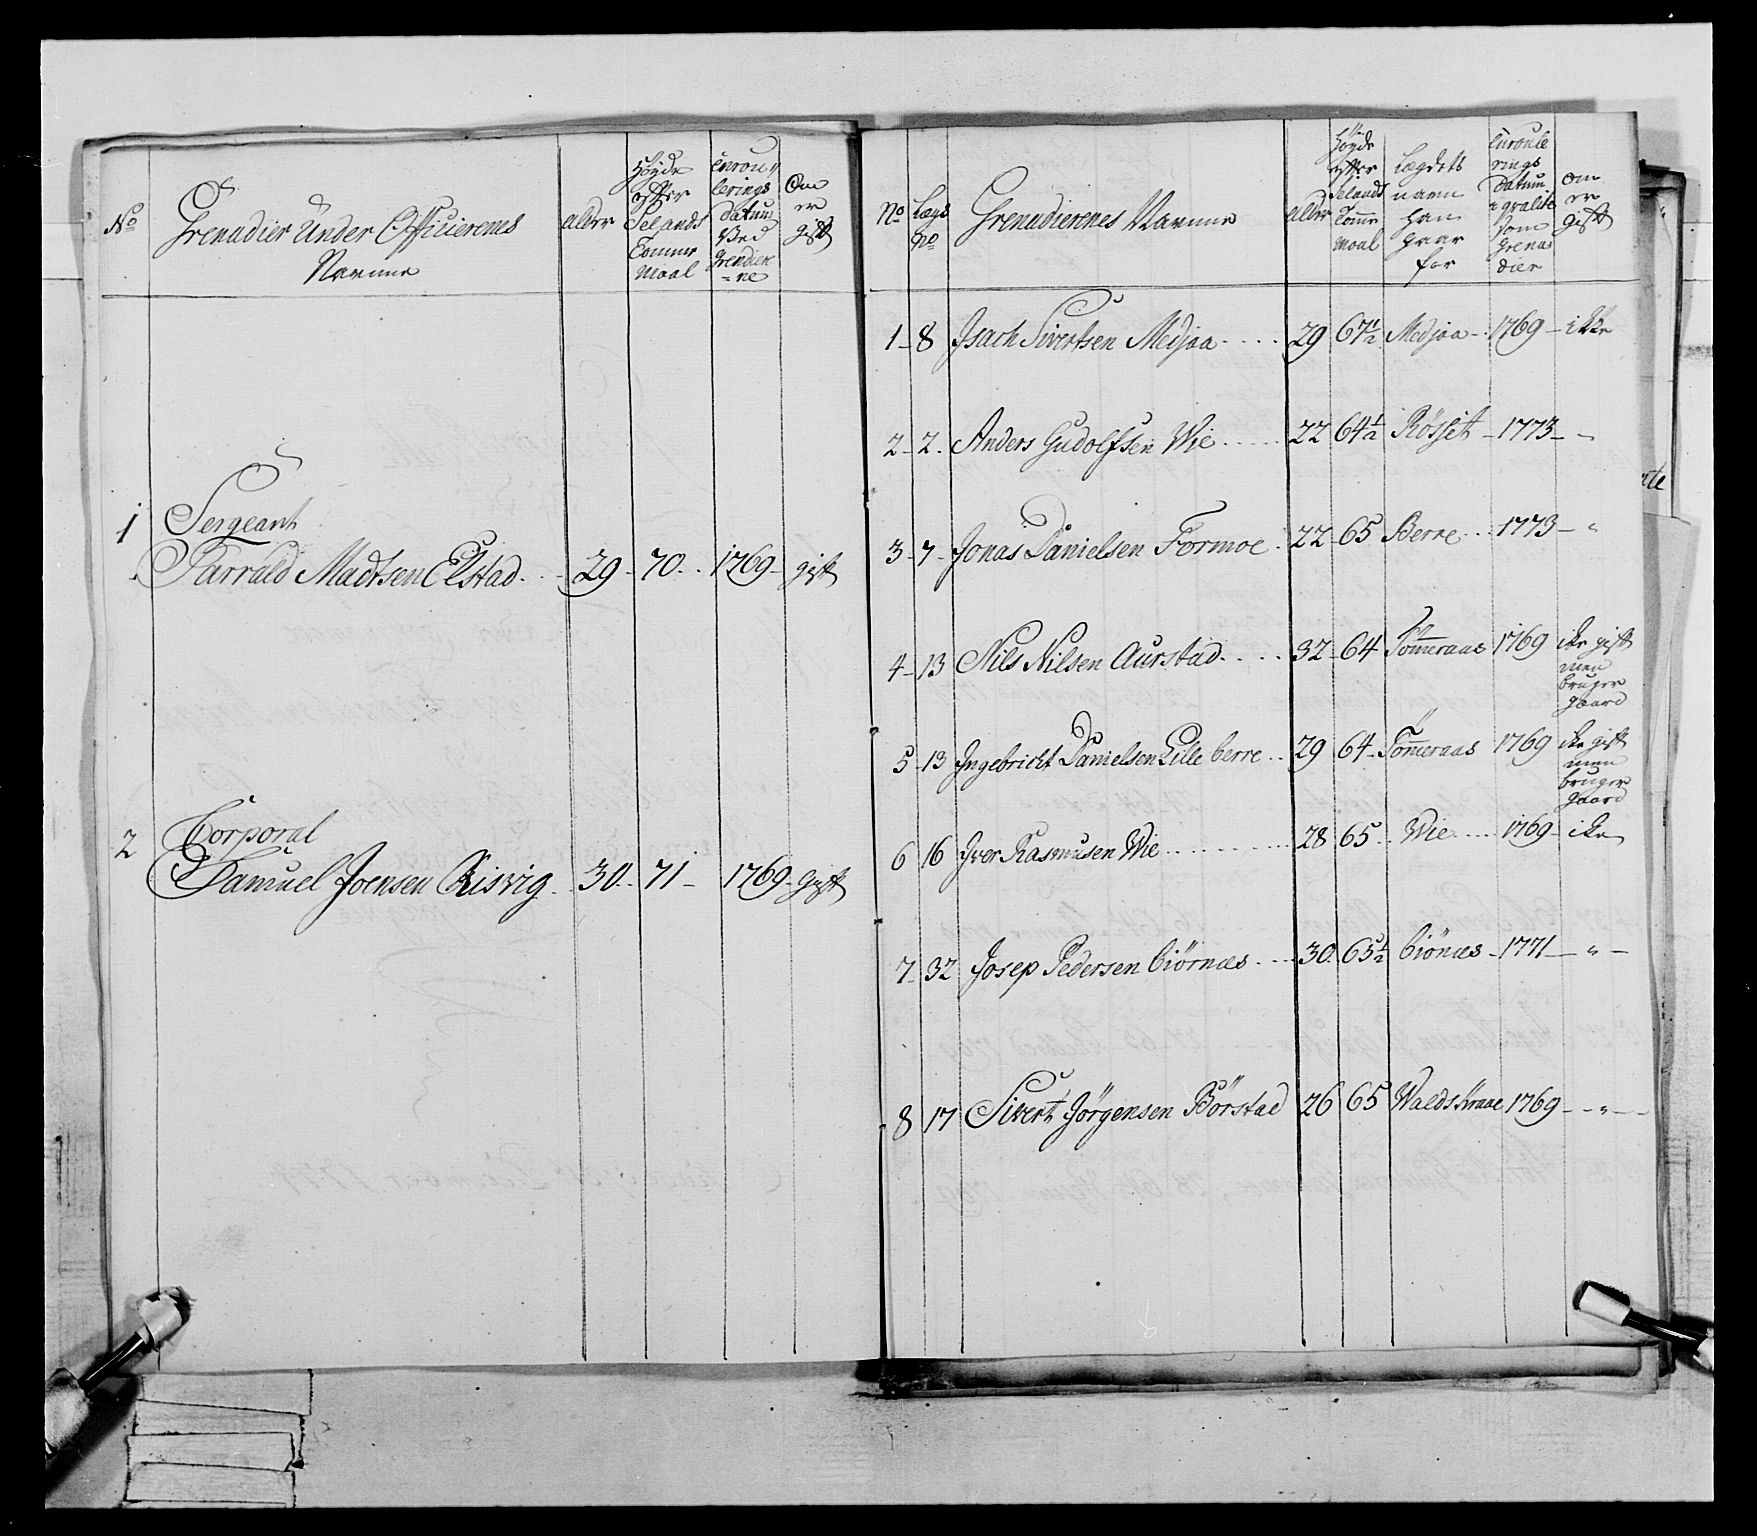 No
Grenadier Under Officierenes
Navnne
alder
Høyde
efter
Selands
Tomme
Maal
Enroul
lerings
Datum
Ved
Grendier
-ne
Om
er
gift
1 Sergeant
Harrald Madtsen Elstad 29 - 70 1769 - gift
2 Corporal
Samuel Joensen Risvig 30 71 - 1769 - gift
No
Lægs
No
Grenadierenes Navnne
alder
Høyde
efter
Selands
Tomme
Maal
Lægdets
navn
han
gaar
for
Enroule
rings
Datum
i qvalite
som
Grena
dier
om
er
gift
1 - 8 Isach Sivertsen Medjaa 29 67 1/2 Medjaa - 1769 - ikke
2 - 2. Anders Gudolfsen Wie 22 64 1/2 Rösset - 1773 - -
3 - 7 - Jonas Danielsen Formoe 22 65 Berre 1773 - "
4 - 13 Nils Nilsen Aurstad 32 - 64 Tømmeraas 1769 ike gift
men
bruger
gaard
5 - 13 Ingebricht Danielsen Lille berre 29 64 - Tømeraas 1769 ike gift
men
bruger
gaard
6 16 Iver Rasmusen Wie 28 65 Wie 1769 - ike
7 - 32 Josep Pedersen biörnæs 30. 65 1/2 biönæs - 1771 - " -
8 17 Sivert Jörgensen Börstad 26 65 Waldskraae 1769 - " -